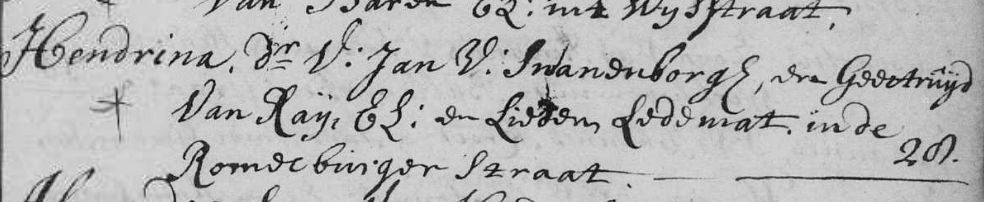 Van Baren EL: in de Wijdstraat.
Hendrina, dr V: Jan V: Swanenborgh, en Geertruijd
Van Raij, EL: en Lieden Ledemat. in de
Romeburger Straat. 28.